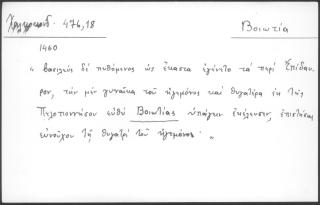 Χαλκοκονδ. 476,18
Βοιωτία
1460
" βασιλεὺς δὲ πυθόμενος ὡς ἕκαστα ἐγένετο τὰ περὶ Ἐπίδαυ-
ρον, τὴν μὲν γυναῖκα τοῦ ἡγεμόνος καὶ θυγατέρα ἐκ τῆς
Πελοποννήσου εὐθὺ Βοιωτίας ὑπάγειν ἐκέλευσεν, ἐπιστήσας
εὐνοῦχον τῇ θυγατρὶ τοῦ ἡγεμόνος. "